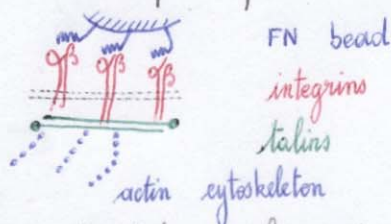 FN bead
αβ αβ αβ
integrins
talins
actin cytoskeleton